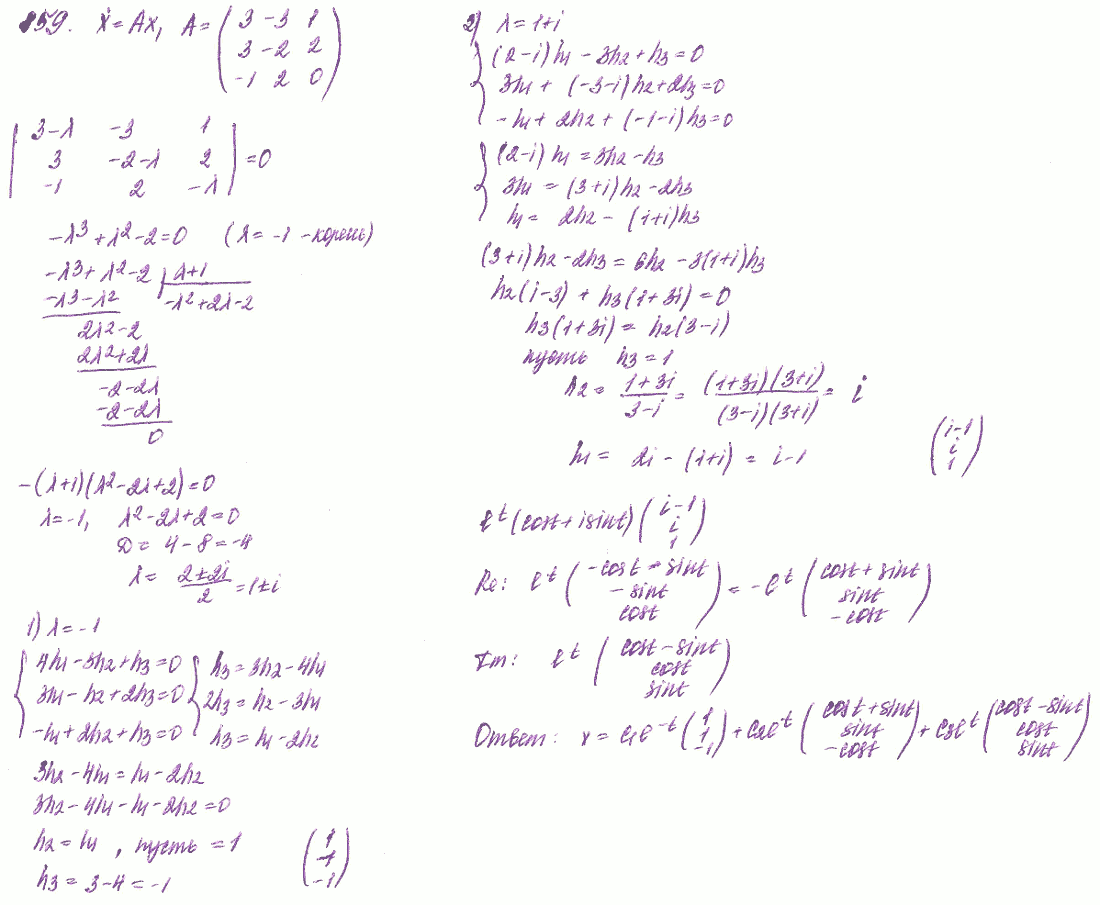 859. ẋ = Ax, A = (3 -3 1
3 -2 2
-1 2 0)
|3-λ -3 1
3 -2-λ 2
-1 2 -λ| = 0
-λ³+λ²-2=0 (λ=-1 - корень)
-λ³+λ²-2 | λ+1
-λ³-λ² -λ²+2λ-2
2λ²-2
2λ²+2λ
-2-2λ
-2-2λ
0
-(λ+1)(λ²-2λ+2)=0
λ=-1, λ²-2λ+2=0
D = 4-8=-4
λ = (2±2i)/2 = 1±i
1) λ=-1
{4h₁-3h₂+h₃=0 {h₃=3h₂-4h₁
3h₁-h₂+2h₃=0 2h₃=h₂-3h₁
-h₁+2h₂+h₃=0 h₃=h₁-2h₂
3h₂-4h₁=h₁-2h₂
3h₂-4h₁-h₁-2h₂=0
h₂=h₁, пусть =1 (1
1
-1)
h₃=3-4=-1
2) λ=1+i
{(2-i)h₁-3h₂+h₃=0
3h₁+(-3-i)h₂+2h₃=0
-h₁+2h₂+(-1-i)h₃=0
{(2-i)h₁=3h₂-h₃
3h₁=(3+i)h₂-2h₃
h₁=2h₂-(1+i)h₃
(3+i)h₂-2h₃=6h₂-3(1+i)h₃
h₂(i-3)+h₃(1+3i)=0
h₃(1+3i)=h₂(3-i)
пусть h₃=1
h₂ = (1+3i)/(3-i) = (1+3i)(3+i)/(3-i)(3+i) = i
h₁ = 2i-(1+i) = i-1 (i-1
i
1)
eᵗ(cost+isint)(i-1
i
1)
Re: eᵗ(-cost-sint
-sint
cost) = -eᵗ(cost+sint
sint
-cost)
Im: eᵗ(cost-sint
cost
sint)
Ответ: x = c₁e⁻ᵗ(1
1
-1)+c₂eᵗ(cost+sint
sint
-cost)+c₃eᵗ(cost-sint
cost
sint)